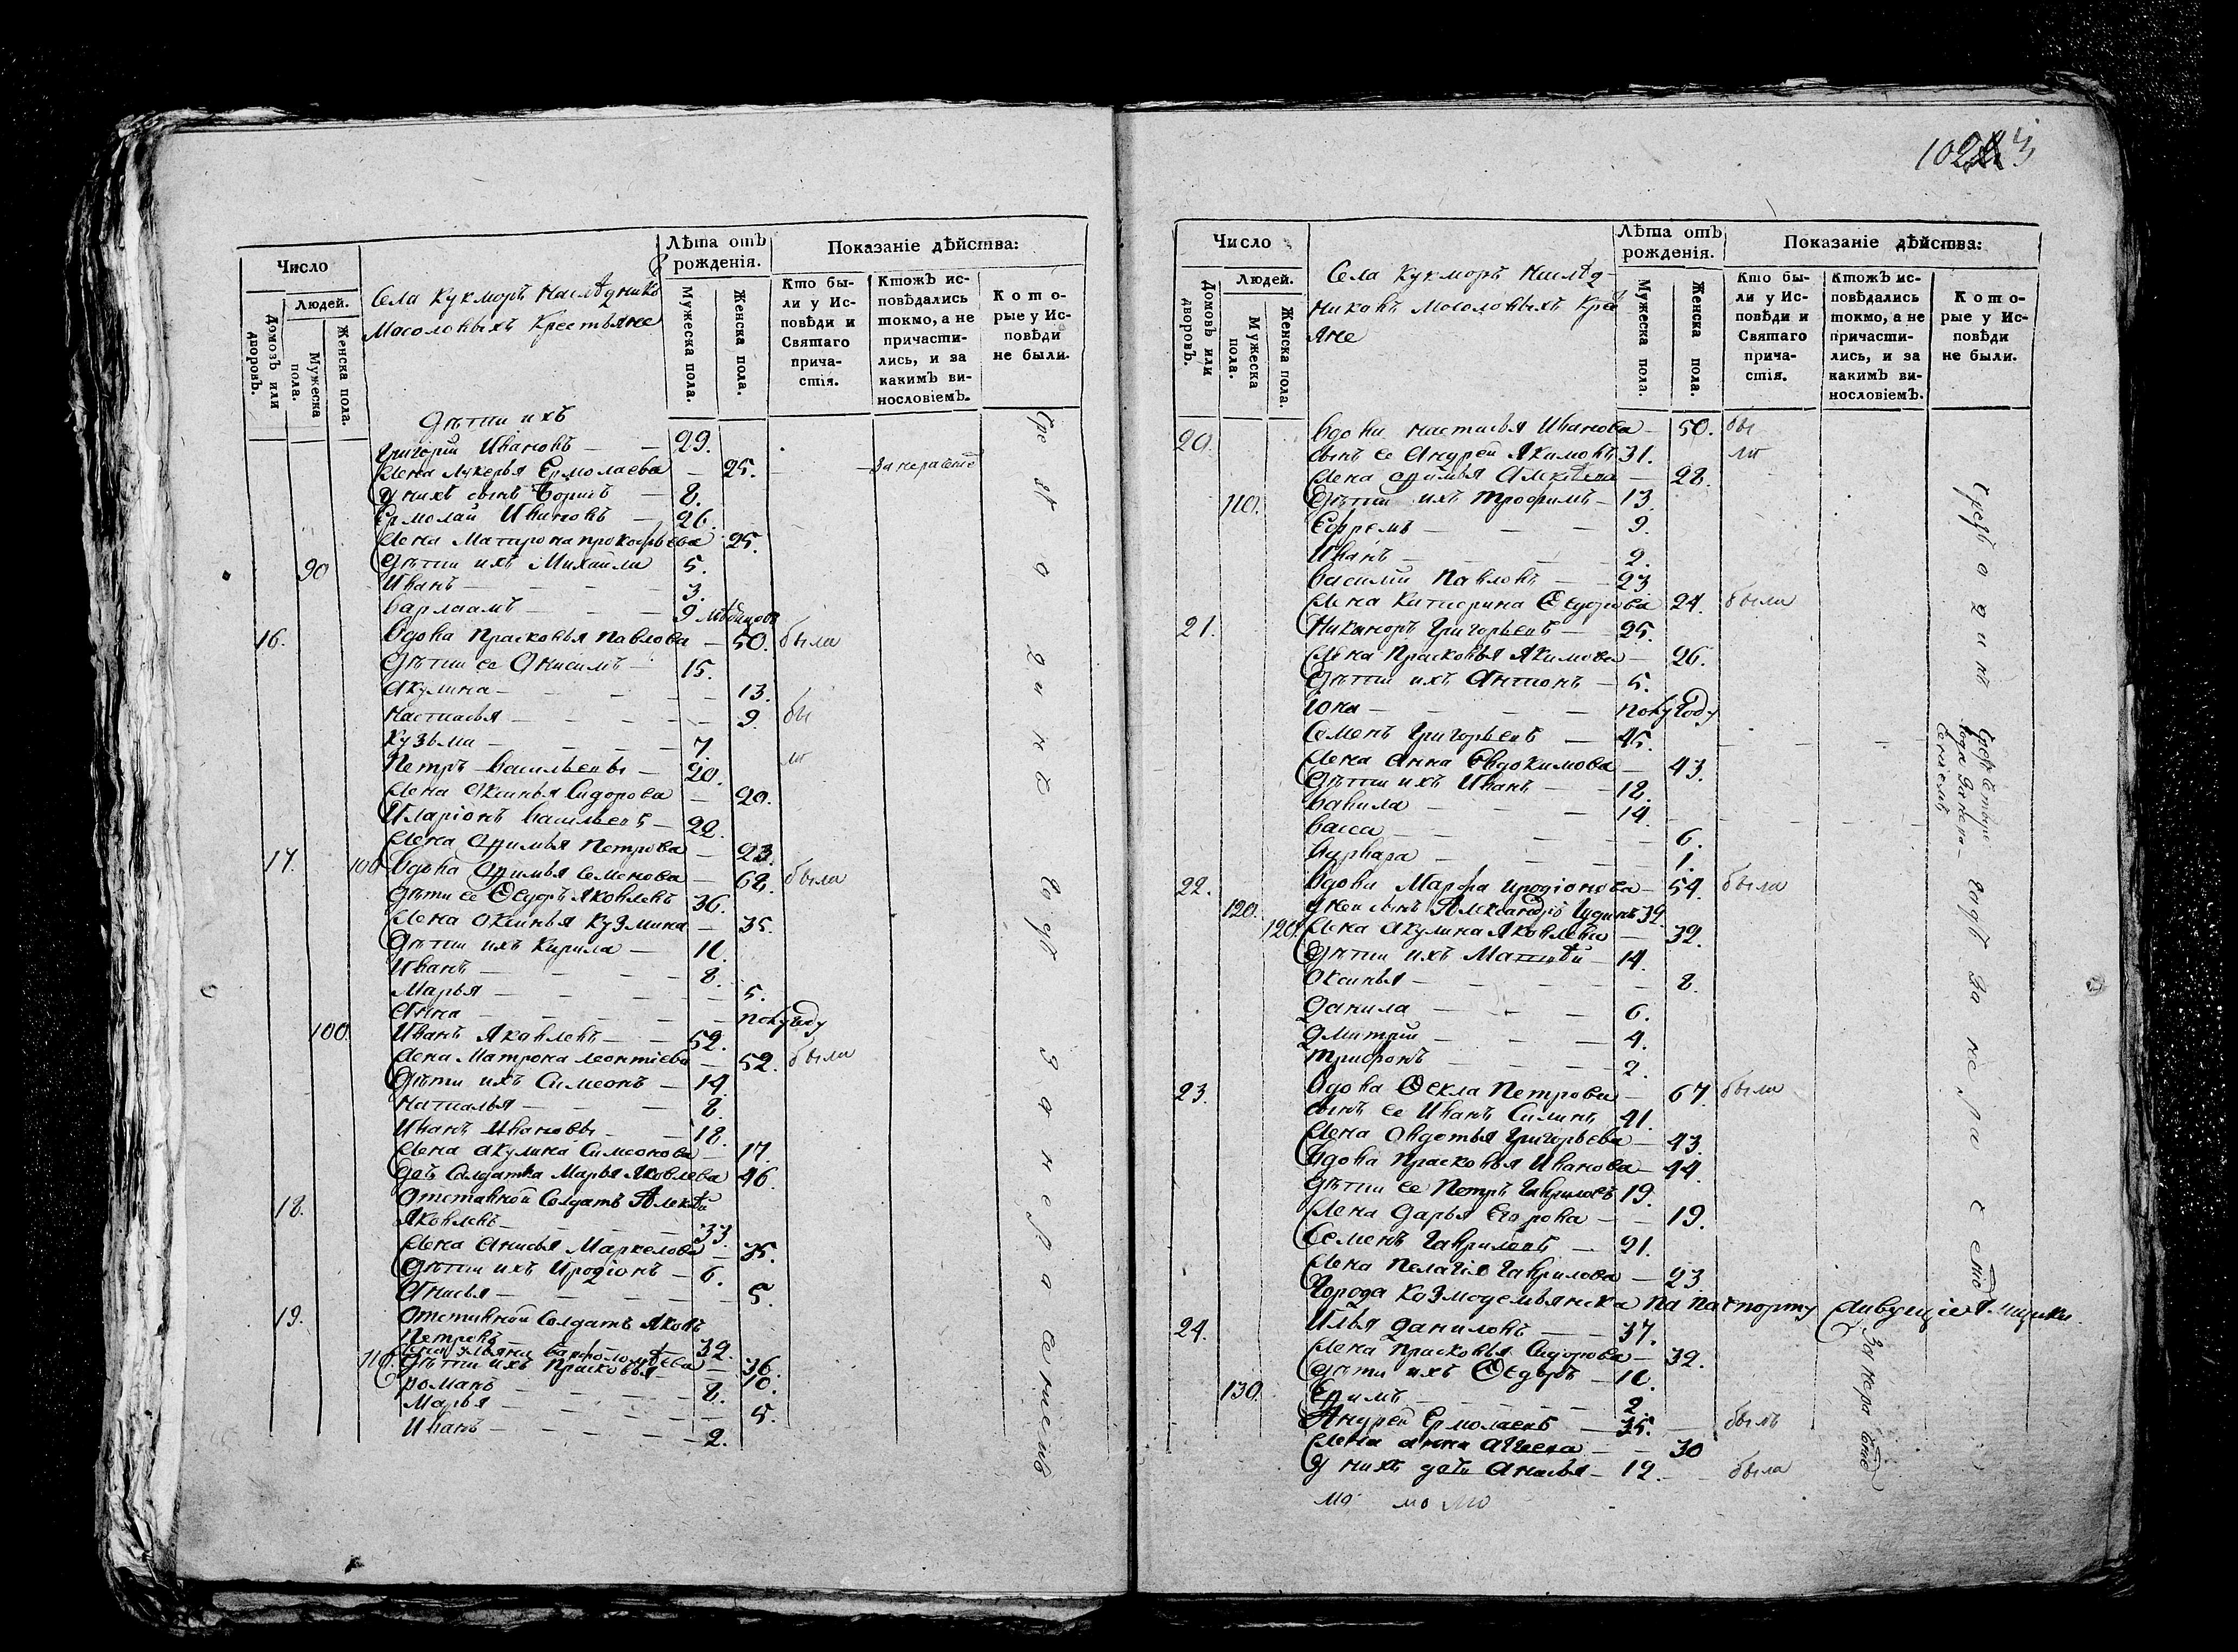 Число
Людей.
Домовъ или дворовъ.
Мужеска пола.
Женска пола.
Села Кукморъ Наслѣдниковъ
Мосоловыхъ Крестьяне
Лѣта отъ рожденія.
Мужеска пола.
Женска пола.
Показаніе дѣйства:
Кто были у Исповѣди и Святаго причастія.
Ктожъ исповѣдались токмо, а не причастились, и за какимъ винословіемъ.
Которые у Исповѣди не были.
Дѣтти ихъ
Григорій Ивановъ — 29.
Жена Лукерья Ермолаева — 25. — За нераченіе
У нихъ сынъ Борисъ — 8.
Ермолай Ивановъ — 26.
Жена Матрона Прокофьева 25.
90 Дѣтти ихъ Михайла 5.
Иванъ — 3.
Варлаамъ — 9 мѣсяцовъ
16. Вдова Прасковья Павлова — 50. была
Дѣтти ее Анисимъ — 15.
Акулина — 13.
Настасья — 9 бы
Кузьма — 7.
ли
Петръ Васильевъ — 20.
Жена Аксинья Сидорова — 20.
Иларіонъ Васильевъ — 22.
Жена Афимья Петрова — 23.
17. 100 Вдова Афимья Семенова — 62. была
Дѣти ее Ѳедоръ Яковлевъ 36.
Жена Оксинья Кузмина — 35.
Дѣтти ихъ Кирила — 11.
Иванъ — 8.
Марья — 5.
Анна — полугоду
100. Иванъ Яковлевъ — 52.
Жена Матрона Леонтіева — 52. были
Дѣти ихъ Симеонъ — 14.
Наталья — 8.
Иванъ Ивановъ — 18.
Жена Акулина Симеонова — 17.
Солдатка Марья Яковлева 46.
18. Отставной Солдатъ Алексѣй
Яковлевъ — 33.
Жена Анисья Маркелова — 35.
Дѣтти ихъ Иродіонъ — 6.
Анисья — 5.
19. Отставной Солдатъ Яковъ
Петровъ — 39.
Жена Ульяна Варфоломѣева — 36.
110. Дѣтти ихъ Прасковья 10.
Романъ — 8.
Марья — 5.
Иванъ — 2.
Число
Людей.
Домовъ или дворовъ.
Мужеска пола.
Женска пола.
Села Кукморъ Наслѣд-
никовъ Мосоловыхъ Крест
яне
Лѣта отъ рожденія.
Мужеска пола.
Женска пола.
Показаніе дѣйства:
Кто были у Исповѣди и Святаго причастія.
Ктожъ исповѣдались токмо, а не причастились, и за какимъ винословіемъ.
Которые у Исповѣди не были.
20. Вдова Настасья Иванова — 50. бы
Сынъ ее Андрей Якимовъ 31. ли
Жена Афимья — 28.
110. Дѣтти ихъ Трофимъ — 13.
Ефремъ — 9.
Иванъ — 2.
Василій Павловъ — 23
Жена Катерина Ѳедорова 24. были
21. Никаноръ Григорьевъ — 25.
Жена Прасковья Якимова — 26.
Дѣтти ихъ Антонъ — 5.
Іона — полугоду
Семенъ Григорьевъ — 45.
Жена Анна Овдокимова — 43.
Дѣтти ихъ Иванъ — 18.
Вавила — 14.
Васса — 6.
Варвара — 1.
22. Вдова Марфа Иродіонова — 54. была
120. У нея сынъ Александръ 39.
120. Жена Акулина Яковлева — 39.
Дѣтти ихъ Матвѣй — 14.
Оксинья — 8.
Данила — 6.
Дмитрій — 4.
Трифонъ — 2.
23. Вдова Ѳекла Петрова — 67. была
Сынъ ее Иванъ Силинъ 41.
Жена Овдотья Григорьева — 43.
Вдова Прасковья Иванова — 44.
Дѣтти ее Петръ Гавриловъ 19.
Жена Дарья Егорова — 19.
Семенъ Гавриловъ — 21.
Жена Пелагія Гаврилова — 23
Города Козмодемьянска по паспорту живущіе
24. Илья Даниловъ — 37.
Жена Прасковья Сидорова — 39.
Дѣти ихъ Ѳедоръ — 10.
130. Ефимъ — 2.
Андрей Ермолаевъ — 35. былъ
Жена Анна — 30
У нихъ Анисья — 12. была